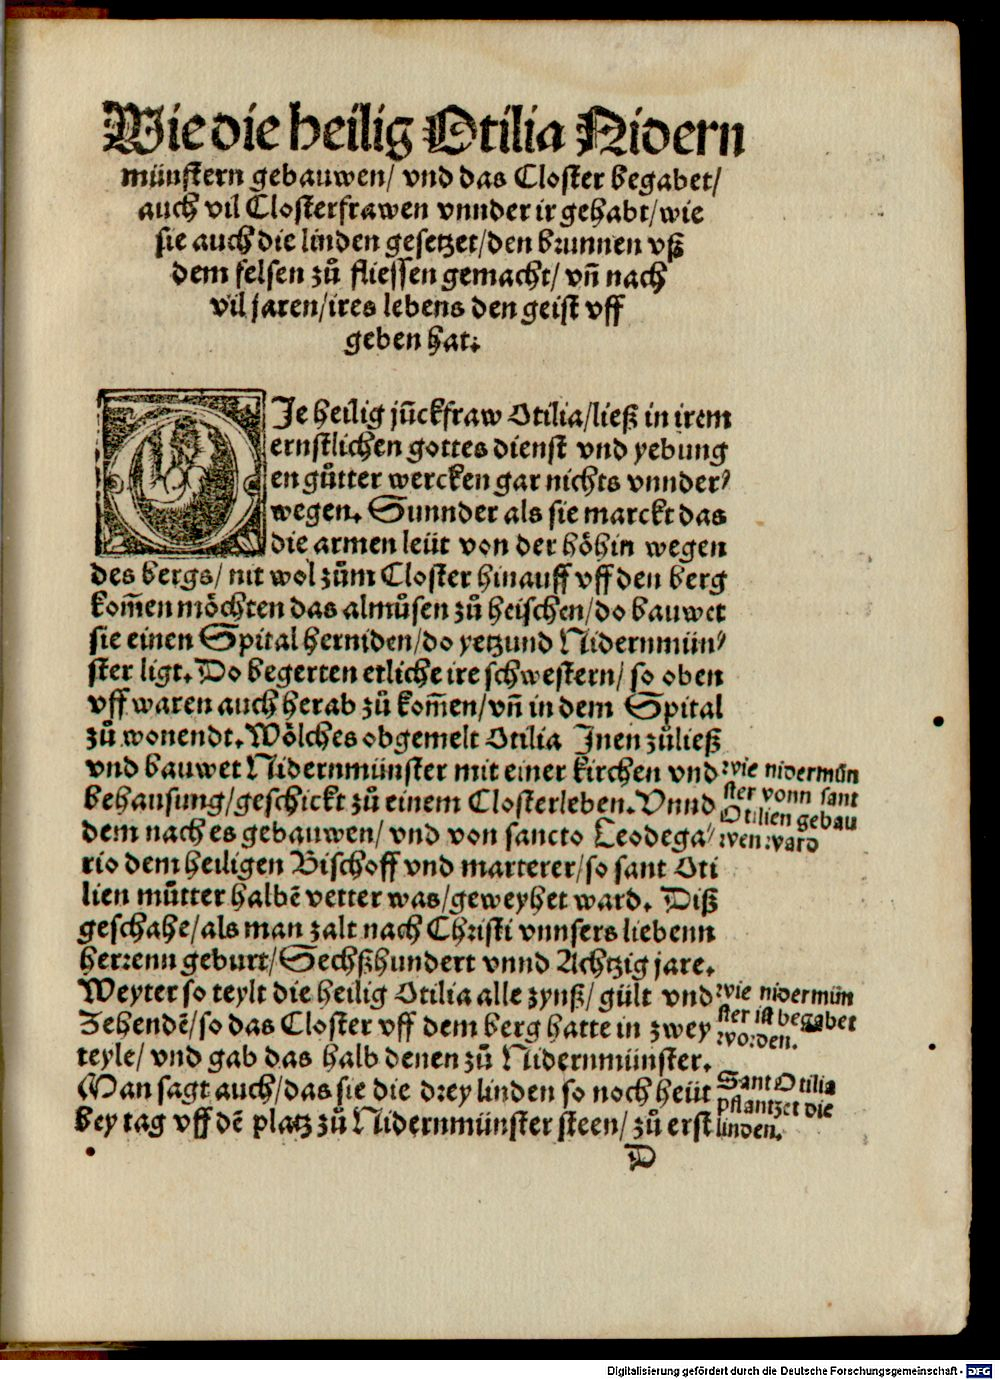 Wie die heilig Otilia Nidern
münstern gebauwen/ vnd das Closter begabet/
auch vil Closterfrawen vnnder ir gehabt/wie
sie auch die linden gesetzet/den brunnen vß
dem felsen zů fliessen gemacht/ vñ nach
vil jaren/ires lebens den geist vff
geben hat.
DJe heilig jũckfraw Otilia/ließ in irem
ernstlichen gottes dienst vnd yebung
en gůtter wercken gar nichts vnnder⸗
wegen. Sunnder als sie marckt das
die armen leüt von der höhin wegen
des bergs/ nit wol zům Closter hinauff vff den berg
kom̃en möchten das almůsen zů heischen/do bauwet
sie einen Spital herniden/do yetzund Nidernmün⸗
ster ligt. Do begerten etliche ire schwestern/ so oben
vff waren auch herab zů kom̃en/vñ in dem Spital
zů wonendt. Wölches obgemelt Otilia Jnen zůließ
vnd bauwet Nidernmünster mit einer kirchen vnd
behausung/geschickt zů einem Closterleben. Vnnd
dem nach es gebauwen/ vnd von sancto Leodega⸗
rio dem heiligen Bischoff vnd marterer/so sant Oti
lien můtter halbẽ vetter was/geweyhet ward. Diß
geschahe/als man zalt nach Christi vnnsers liebenn
herrenn geburt/Sechßhundert vnnd Achtzig jare.
Weyter so teylt die heilig Otilia alle zynß/ gült vnd
Zehendẽ/so das Closter vff dem berg hatte in zwey
teyle/ vnd gab das halb denen zů Nidernmünster.
Man sagt auch/das sie die drey linden so noch heüt
bey tag vff dẽ platz zů Nidernmünster steen/ zů erst
wie nidermün
ster vonn sant
Otilien gebau
wen ward
wie nidermün
ster ist begabet
worden.
Sant Otilia
pflantzet die
linden.
D
Digitalisierung gefördert durch die Deutsche Forschungsgemeinschaft - DFG